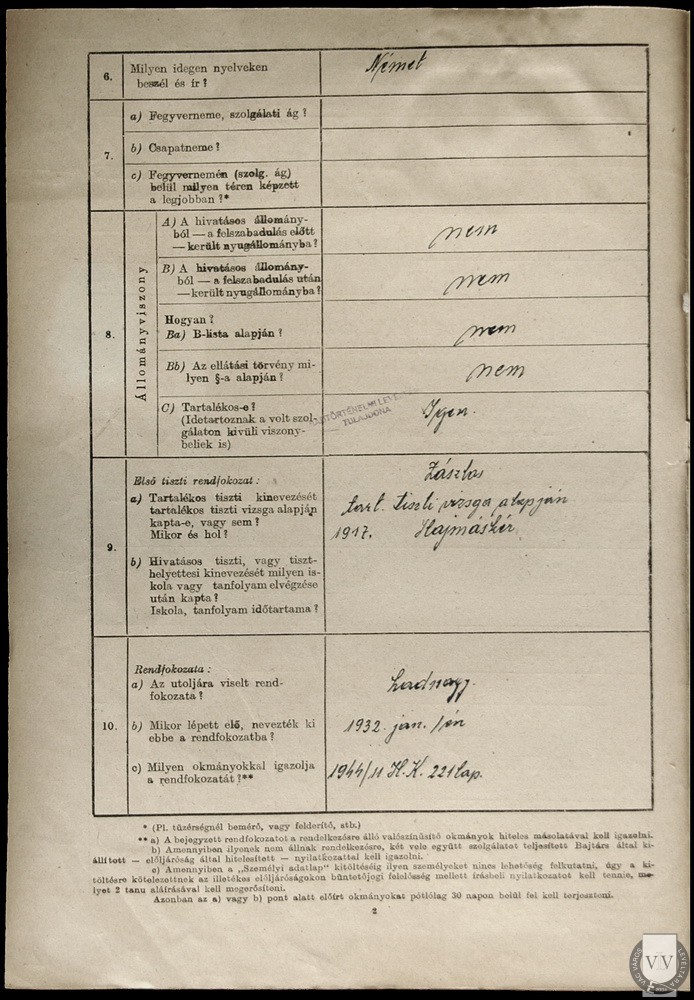 6. Milyen idegen nyelveken
beszél és ír?
Német
7.
a) Fegyverneme, szolgálati ág?
b) Csapatneme?
c) Fegyvernemén (szolg. ág)
belül milyen téren képzett
a legjobban?*
8.
Állományviszony
A) A hivatásos állomány-
ból — a felszabadulás előtt
— került nyugállományba?
nem
B) A hivatásos állomány-
ból — a felszabadulás után
— került nyugállományba?
nem
Hogyan?
Ba) B-lista alapján?
nem
Bb) Az ellátási törvény mi-
lyen §-a alapján?
nem
C) Tartalékos-e?
(Idetartoznak a volt szol-
gálaton kívüli viszony-
beliek is)
Igen.
TULAJDONA
9.
Első tiszti rendfokozat:
a) Tartalékos tiszti kinevezését
tartalékos tiszti vizsga alapján
kapta-e, vagy sem?
Mikor és hol?
Zászlós
tart. tiszti vizsga alapján
1917. Hajmáskér.
b) Hivatásos tiszti, vagy tiszt-
helyettesi kinevezését milyen is-
kola vagy tanfolyam elvégzése
után kapta?
Iskola, tanfolyam időtartama?
10.
Rendfokozata:
a) Az utoljára viselt rend-
fokozata?
hadnagy.
b) Mikor lépett elő, nevezték ki
ebbe a rendfokozatba?
1932. jan. 1én
c) Milyen okmányokkal igazolja
a rendfokozatát?**
1944/11 H.K. 221 lap.
* (Pl. tüzérségnél bemérő, vagy felderítő, stb.)
** a) A bejegyzett rendfokozatot a rendelkezésre álló valószínűsítő okmányok hiteles másolatával kell igazolni.
b) Amennyiben ilyenek nem állnak rendelkezésre, két vele együtt szolgálatot teljesített Bajtárs által ki-
állított — előljáróság által hitelesített — nyilatkozattal kell igazolni.
c) Amennyiben a „Személyi adatlap" kitöltéséig ilyen személyeket nincs lehetőség felkutatni, úgy a ki-
töltésre kötelezettnek az illetékes előljáróságokon büntetőjogi felelősség mellett írásbeli nyilatkozatot kell tennie, me-
lyet 2 tanu aláírásával kell megerősíteni.
Azonban az a) vagy b) pont alatt előírt okmányokat pótlólag 30 napon belül fel kell terjeszteni.
2
VÁC VÁROS LEVÉLTÁRA
VV